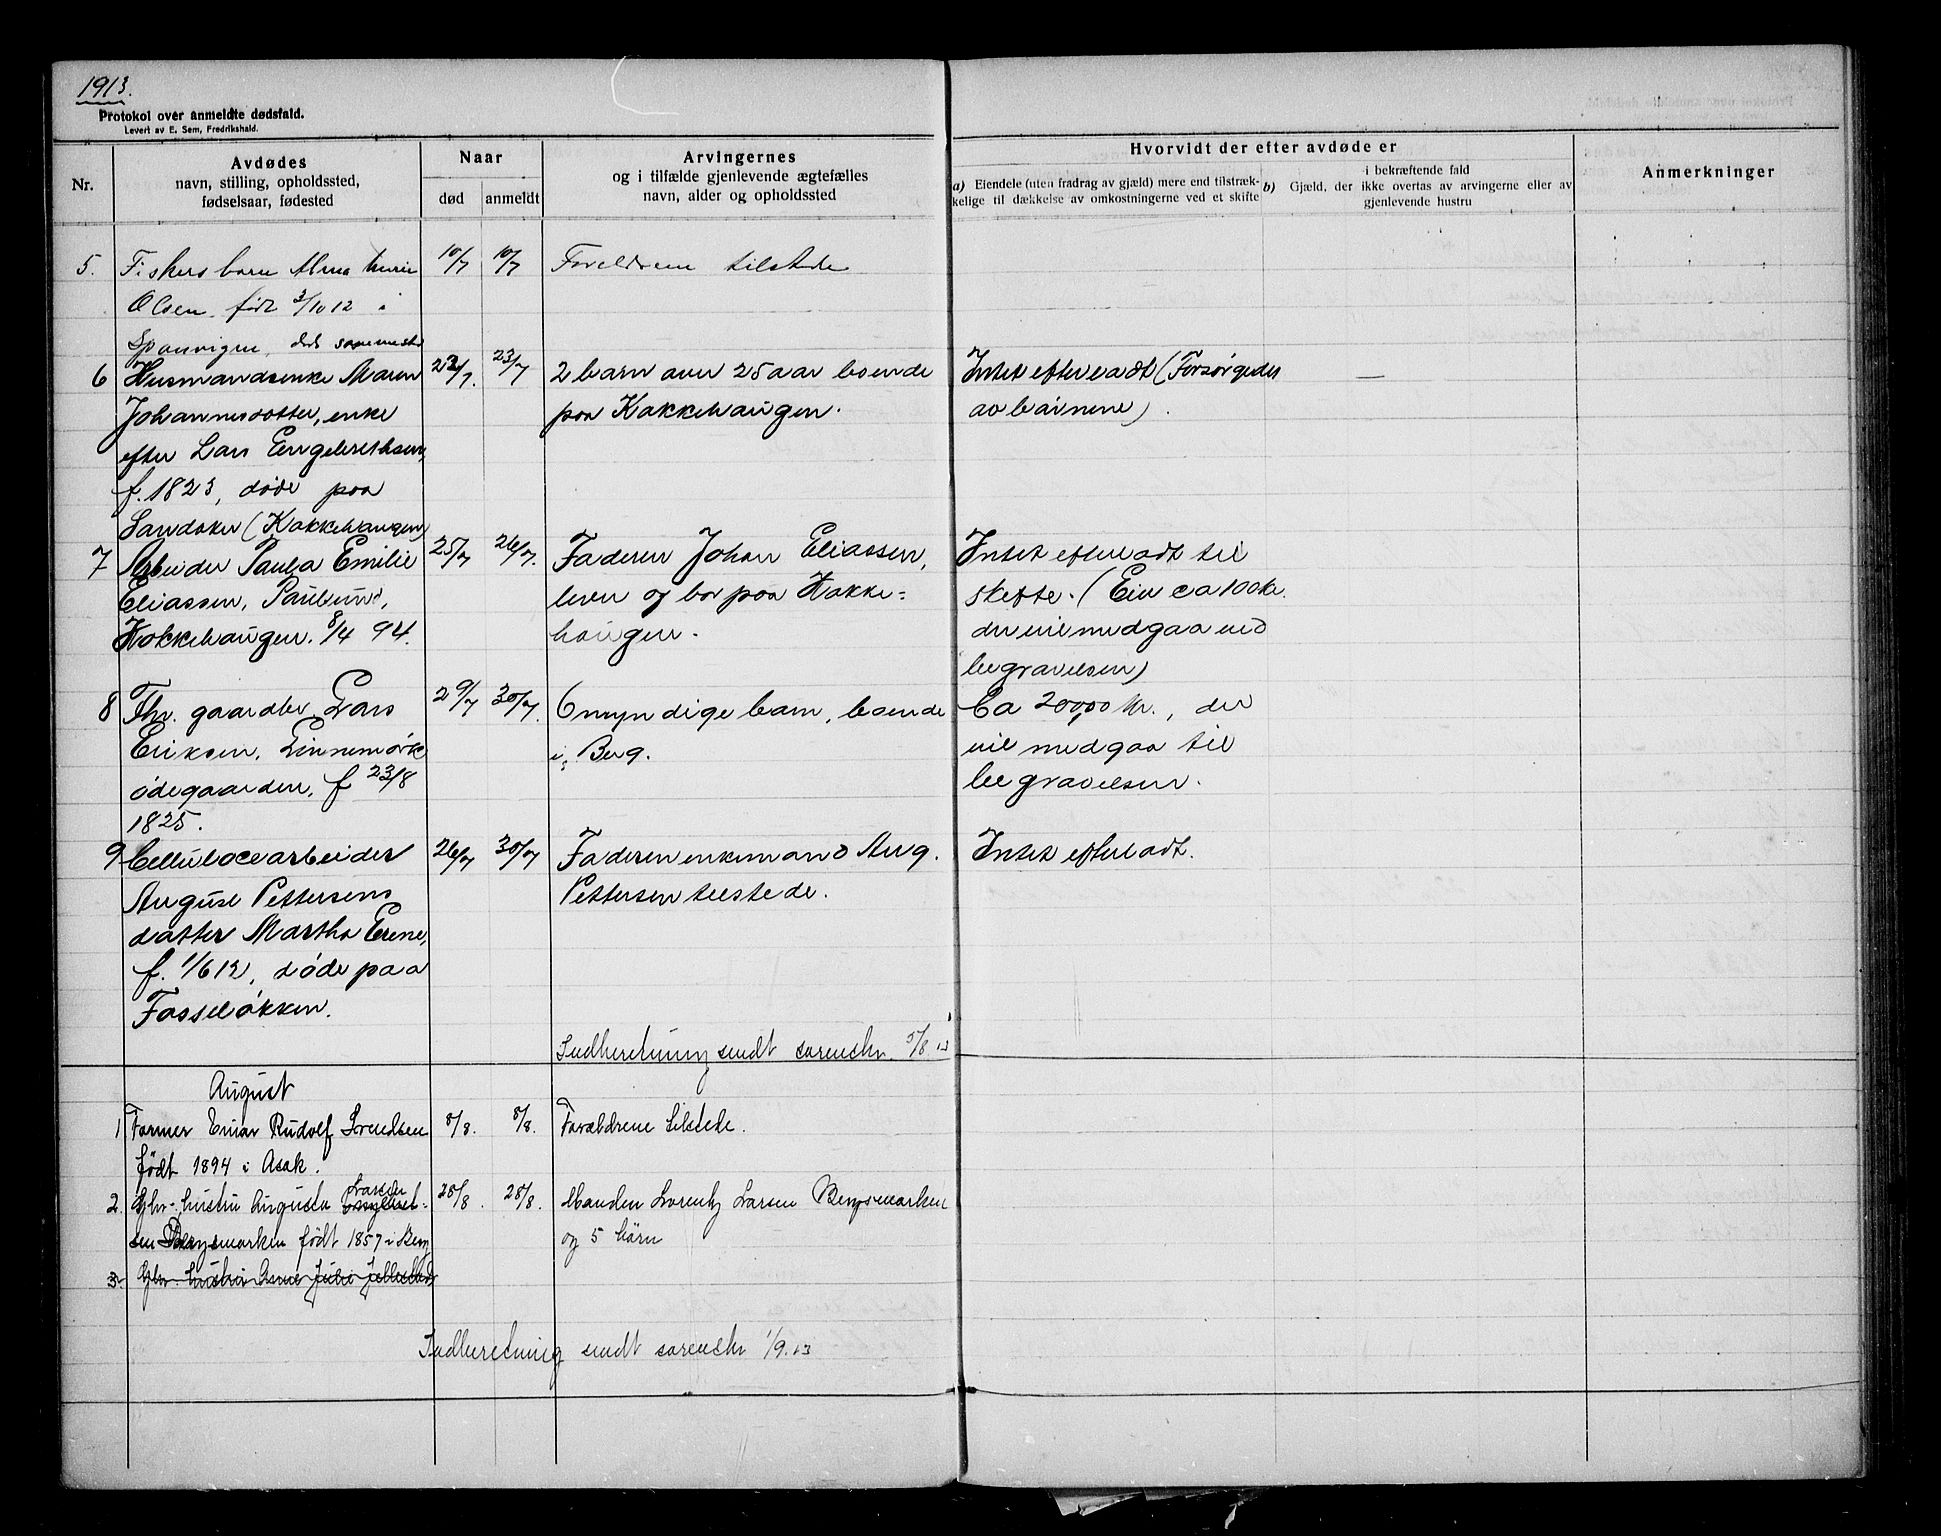 1913.
Protokol over anmeldte dødsfald.
Levert av E. Sem, Fredrikshald.
Nr.
Avdødes
navn, stilling, opholdssted,
fødselsaar, fødested
Naar
død
anmeldt
Arvingernes
og i tilfælde gjenlevende ægtefælles
navn, alder og opholdssted
Hvorvidt der efter avdøde er
a) Eiendele (uten fradrag av gjæld) mere end tilstræk-
kelige til dækkelse av omkostningerne ved et skifte
i bekræftende fald
b) Gjæld, der ikke overtas av arvingerne eller av
gjenlevende hustru
Anmerkninger
5. Fiskers barn Alma Marie 10/7 10/7 Foreldrene tilstede
Olsen. født 3/10 12 i
døds sammested
6 Husmandsenke Maren 23/7. 23/7 2 barn over 25 aar boende Intet efterladt (Forsørgedes —
Johannesdatter, enke paa Kokkehaugen. av barnene).
efter Lars Engebrethsen,
f. 1823, døde paa
Sandaker (Kokkehaugen)
7 Arbeider Paula Emilie 25/7 26/7. Faderen Johan Eliassen, Intet efterladt til
Eliassen, Paulsund, lever og bor paa Kokke= skifte. (Eier ca 100 kr.
Kokkehaugen. 8/4 94. haugen. der vil medgaa ved
begravelsen)
8 Fhv. gaardbr. Lars 29/7 30/7. 6 myndige barn, boende Ca 200,00 kr., der
Eriksen, Linnemørk i Berg. vil medgaa til
ødegaarden, f 23/8 begravelsen.
1825.
9 Cellulocearbeider 26/7 30/7 Faderen enkemand Aug. Intet efterladt.
August Pettersens Pettersen tilstede.
datter Martha Erene,
f. 1/6 12, døde paa
Fosseløkken.
Indberetning sendt sorenskr. 5/8 13
August
1 Farmer Einar Rudolf Svendsen 8/8. 8/8. Forældrene tilstede.
født 1894 i Asak.
2. Gbr. hustru Augusta Larsen 28/8. 28/8. Manden Lorentz Larsen Bergsmarken
Bergsmarken født 1857 i Berg og 5 børn
3. Gbr. hustru Anne Julie
Indberetning sendt sorenskr 1/9. 13